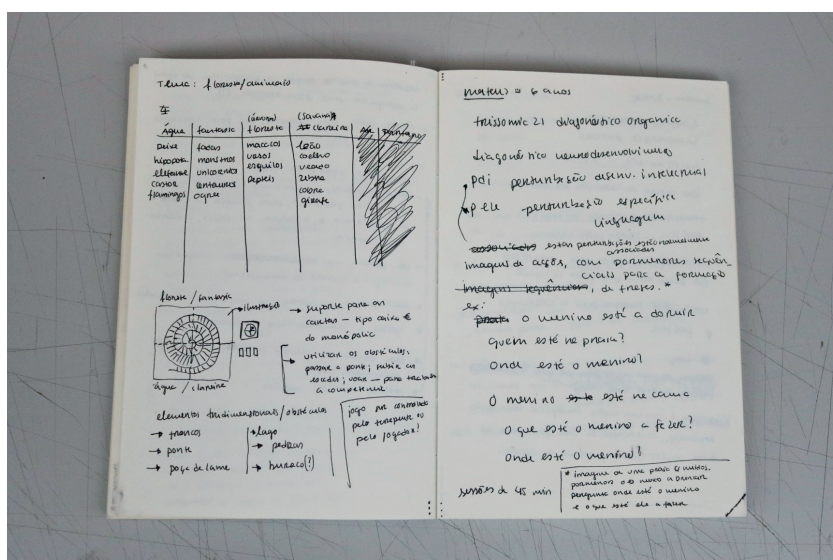 Tema: floresta/animais
(árvores) (savana)
Água fantasia floresta clareira
peixe fadas macacos leão
hipopota monstros ursos coelho
elefante unicornios esquilos veado
castor centauros zebra
flamingos ogre cobra
girafa
floresta / fantasia
ilustração
→ suporte para as
cartas - tipo caixa €
do monópolio
→ utilizar os obstáculos,
passar a ponte; subir as
escadas; voar — para trabalhar
a competência
água / clareira
elementos tridimensionais/obstáculos
→ troncos → lago
→ ponte → pedras
→ poça de lama → buraco(?)
jogo ser controlado
pelo terapeuta ou
pelo jogador?
mateus = 6 anos
trissomia 21 diagonóstico organico
diagonóstico neurodesenvolvimento
pdi perturbação desenv. intelectual
pele - perturbação especifica
linguagem
estas perturbações estão normalmente
associadas
imagens de ações, com pormenores sequên
ciais para a formação
imagens sequênciais, de frases. *
ex:
o menino está a dormir
quem está na praia?
Onde está o menino?
O menino está na cama
O que está o menino a fazer?
onde está o menino?
sessões de 45 min
* imagem de uma praia
pormenor
pergunta onde está o menino
e o que está ele a fazer